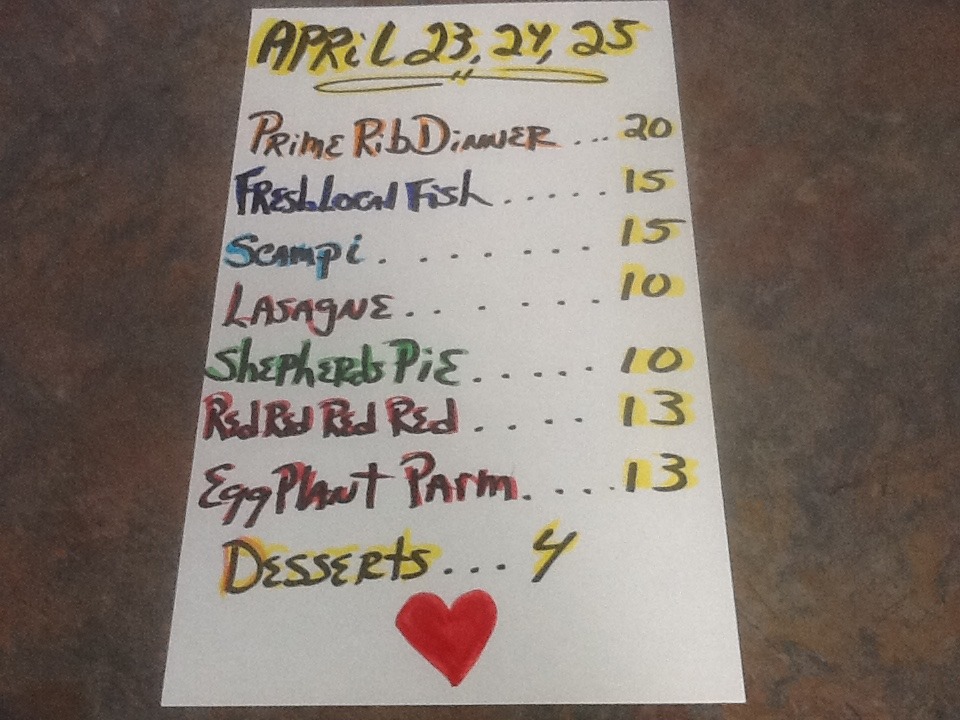 APRiL 23, 24, 25
PRiME RibDiNNER ... 20
FREshLocal Fish ..... 15
Scampi . . . . . . . 15
LASAgNE . . . . . . 10
ShEphERds PiE ..... 10
REd REd REd REd .... 13
EggPlANt PARm .... 13
DESSERts ... 4